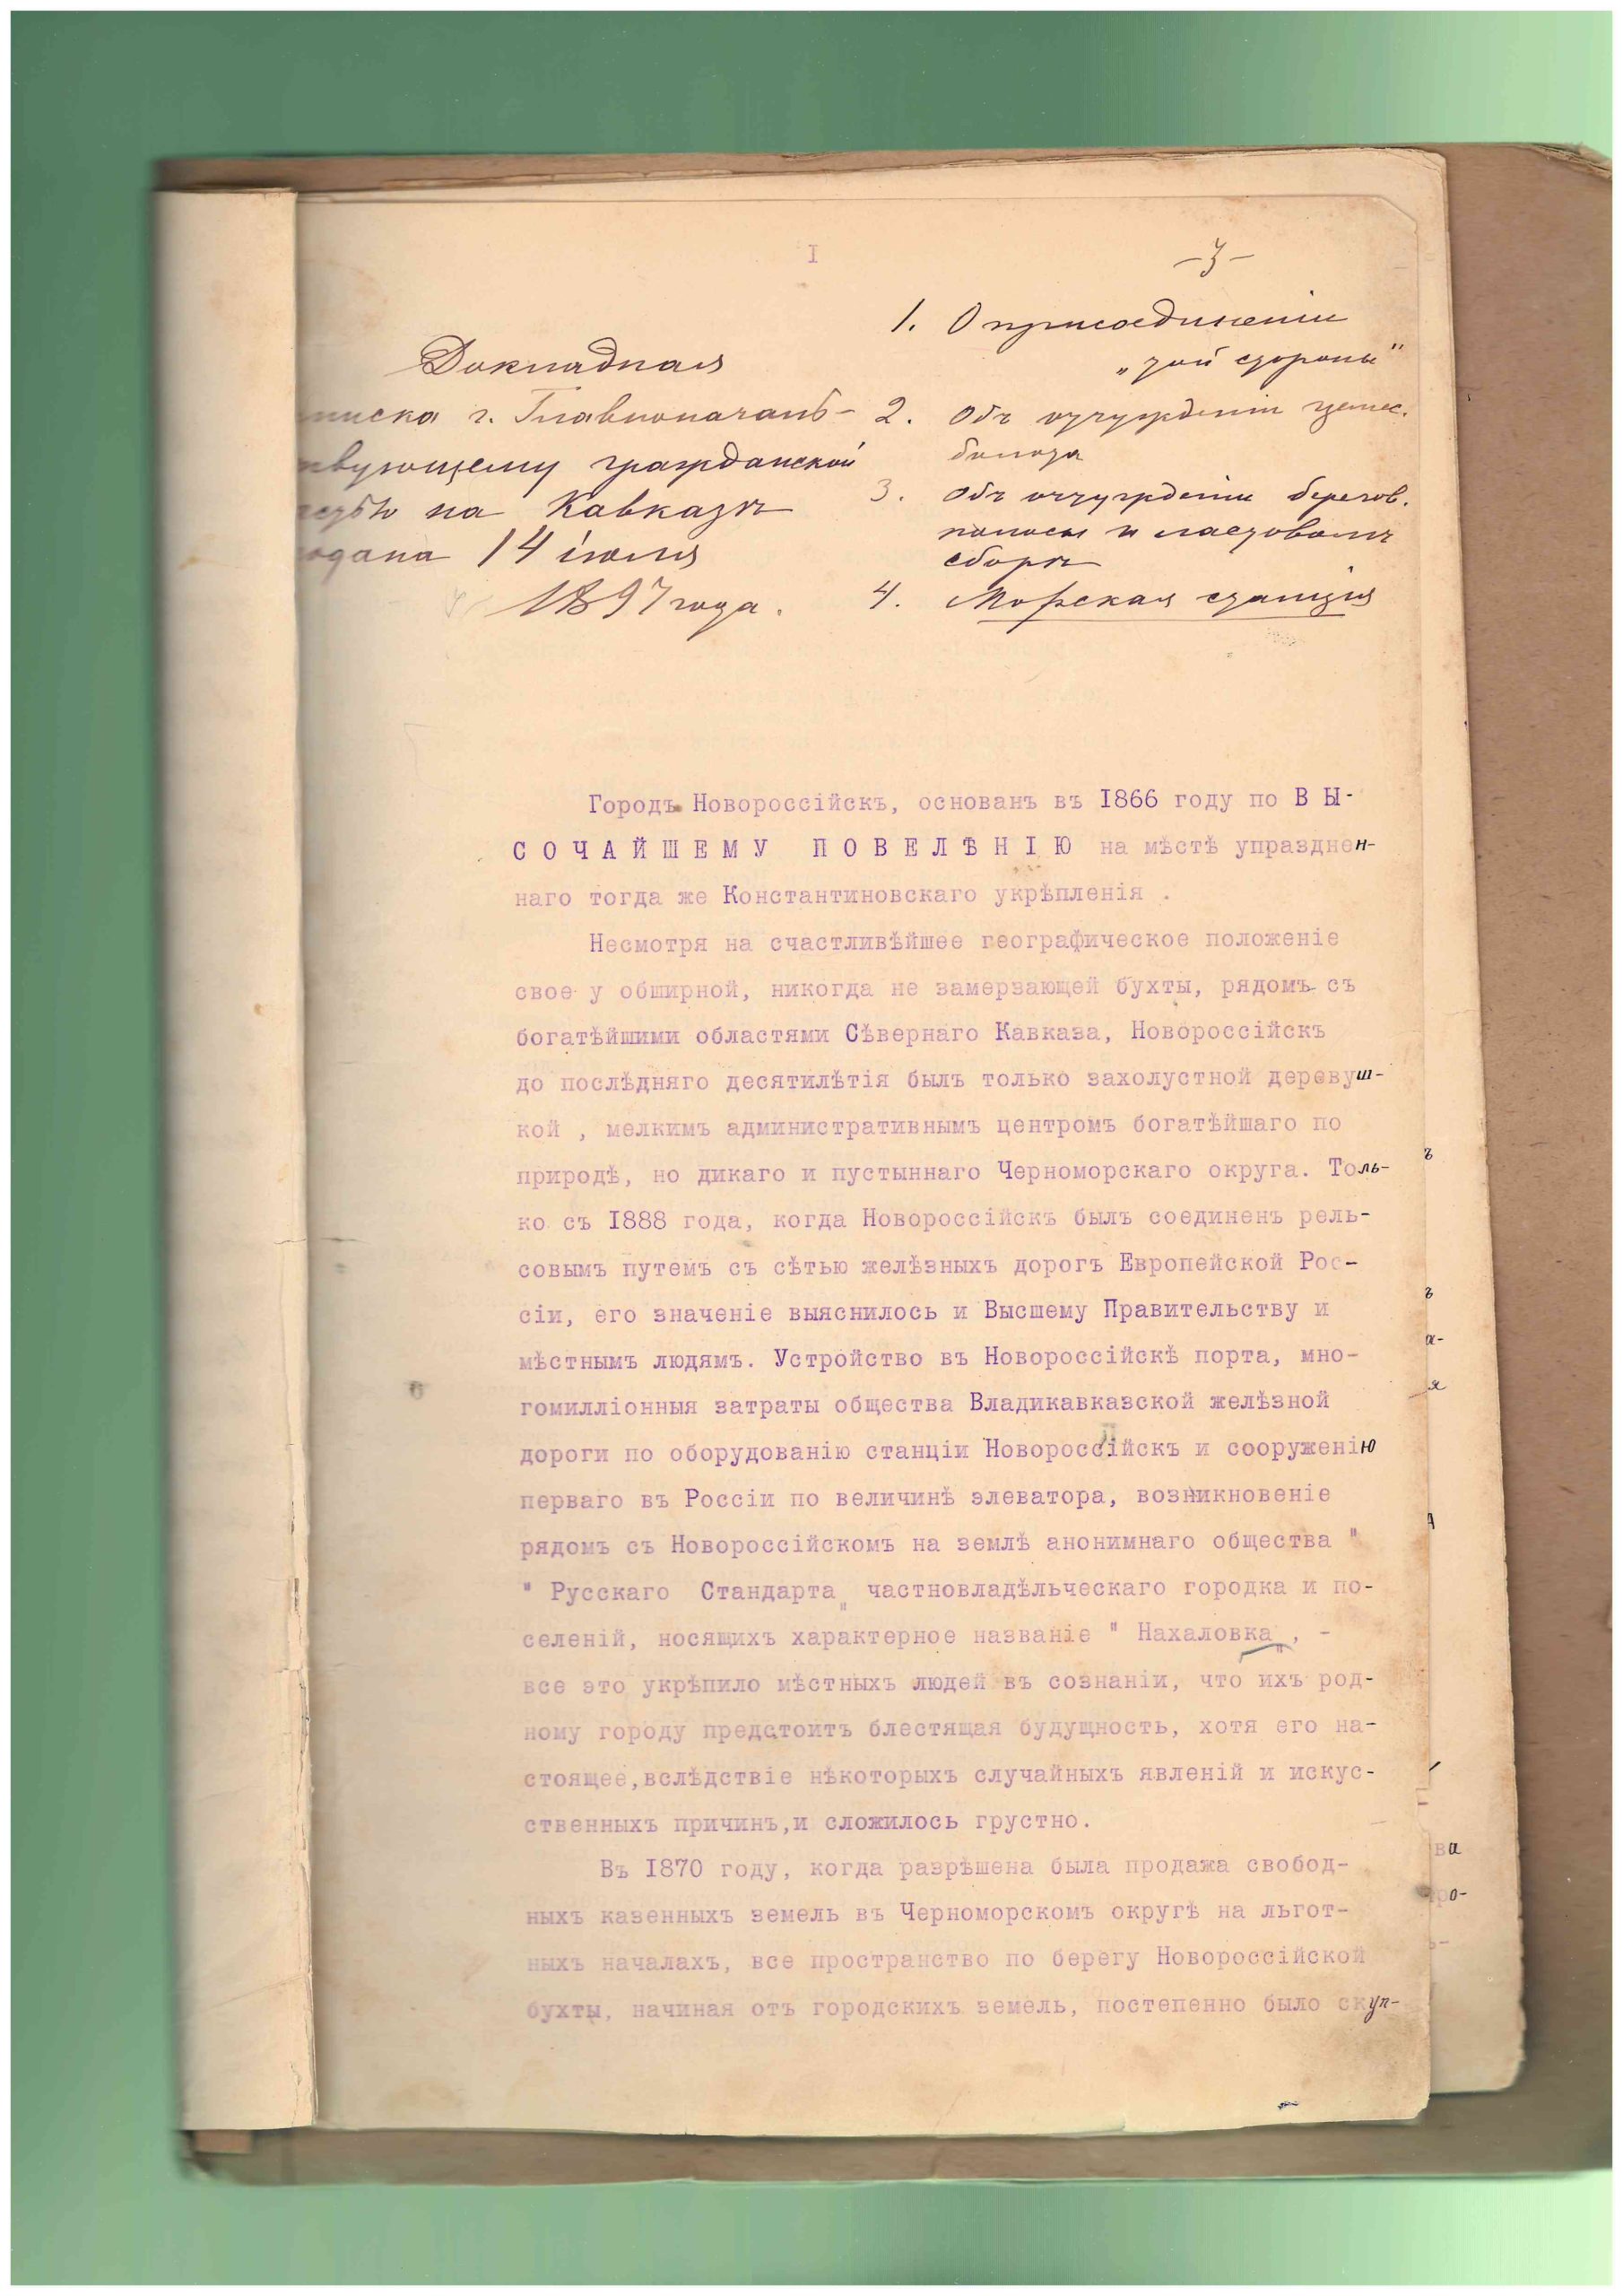 I
-3-
Докладная
писка г. Главноначаль-
твующему гражданской
тью на Кавказѣ
одана 14 іюля
1897 года.
1. О присоединеніи
„той стороны"
2. Объ отчужденіи цемес.
болота
3. Объ отчужденіи берегов.
полосы и ластовомъ
сборѣ
4. Морская станція
Городъ Новороссійскъ, основанъ въ 1866 году по В Ы-
С О Ч А Й Ш Е М У П О В Е Л Ѣ Н І Ю на мѣстѣ упразднен-
наго тогда же Константиновскаго укрѣпленія .
Несмотря на счастливѣйшее географическое положеніе
свое у обширной, никогда не замерзающей бухты, рядомъ съ
богатѣйшими областями Сѣвернаго Кавказа, Новороссійскъ
до послѣдняго десятилѣтія былъ только захолустной деревуш-
кой , мелкимъ административнымъ центромъ богатѣйшаго по
природѣ, но дикаго и пустыннаго Черноморскаго округа. Толь-
ко съ 1888 года, когда Новороссійскъ былъ соединенъ рель-
совымъ путемъ съ сѣтью желѣзныхъ дорогъ Европейской Рос-
сіи, его значеніе выяснилось и Высшему Правительству и
мѣстнымъ людямъ. Устройство въ Новороссійскѣ порта, мно-
гомилліонныя затраты общества Владикавказской желѣзной
дороги по оборудованію станціи Новороссійскъ и сооруженію
перваго въ Россіи по величинѣ элеватора, возникновеніе
рядомъ съ Новороссійскомъ на землѣ анонимнаго общества "
" Русскаго Стандарта„ частновладѣльческаго городка и по-
селеній, носящихъ характерное названіе " Нахаловка„, -
все это укрѣпило мѣстныхъ людей въ сознаніи, что ихъ род-
ному городу предстоитъ блестящая будущность, хотя его на-
стоящее,вслѣдствіе нѣкоторыхъ случайныхъ явленій и искус-
ственныхъ причинъ,и сложилось грустно.
Въ 1870 году, когда разрѣшена была продажа свобод-
ныхъ казенныхъ земель въ Черноморскомъ округѣ на льгот-
ныхъ началахъ, все пространство по берегу Новороссійской
бухты, начиная отъ городскихъ земель, постепенно было скуп-